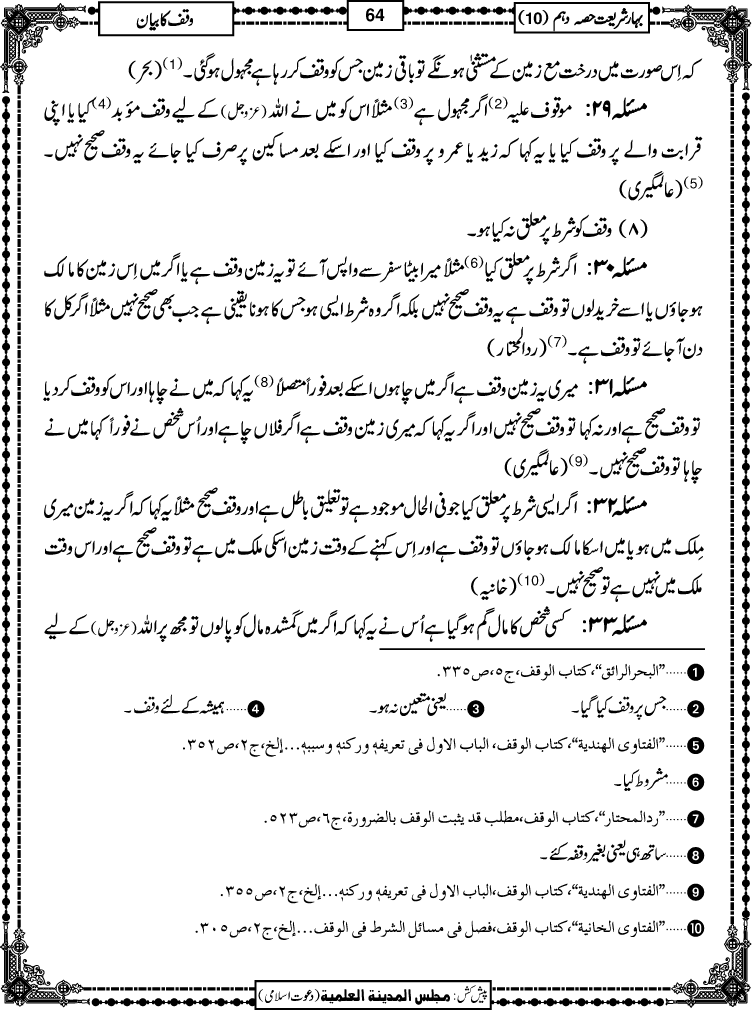 بہارِ شریعت حصہ دہم (10)
64
وقف کا بیان
کہ اِس صورت میں درخت مع زمین کے مستثنیٰ ہونگے تو باقی زمین جس کو وقف کر رہا ہے مجہول ہوگئی۔(1) (بحر)
مسئلہ ۲۹: موقوف علیہ(2) اگر مجہول ہے(3) مثلاً اس کو میں نے اللہ (عزوجل) کے لیے وقف مؤبد(4) کیا یا اپنی
قرابت والے پر وقف کیا یا یہ کہا کہ زید یا عمرو پر وقف کیا اور اسکے بعد مساکین پر صرف کیا جائے یہ وقف صحیح نہیں۔
(5) (عالمگیری)
(۸) وقف کو شرط پر معلق نہ کیا ہو۔
مسئلہ ۳۰: اگر شرط پر معلق کیا(6) مثلاً میرا بیٹا سفر سے واپس آئے تو یہ زمین وقف ہے یا اگر میں اِس زمین کا مالک
ہو جاؤں یا اسے خرید لوں تو وقف ہے یہ وقف صحیح نہیں بلکہ اگر وہ شرط ایسی ہو جس کا ہونا یقینی ہے جب بھی صحیح نہیں مثلاً اگر کل کا
دن آجائے تو وقف ہے۔(7) (ردالمحتار)
مسئلہ ۳۱: میری یہ زمین وقف ہے اگر میں چاہوں اسکے بعد فوراً متصلاً(8) یہ کہا کہ میں نے چاہا اور اس کو وقف کردیا
تو وقف صحیح ہے اور نہ کہا تو وقف صحیح نہیں اور اگر یہ کہا کہ میری زمین وقف ہے اگر فلاں چاہے اور اُس شخص نے فوراً کہا میں نے
چاہا تو وقف صحیح نہیں۔(9) (عالمگیری)
مسئلہ ۳۲: اگر ایسی شرط پر معلق کیا جو فی الحال موجود ہے تو تعلیق باطل ہے اور وقف صحیح مثلاً یہ کہا کہ اگر یہ زمین میری
مِلک میں ہو یا میں اسکا مالک ہو جاؤں تو وقف ہے اور اِس کہنے کے وقت زمین اسکی ملک میں ہے تو وقف صحیح ہے اور اس وقت
ملک میں نہیں ہے تو صحیح نہیں۔(10) (خانیہ)
مسئلہ ۳۳: کسی شخص کا مال گم ہو گیا ہے اُس نے یہ کہا کہ اگر میں گمشدہ مال کو پالوں تو مجھ پر اللہ (عزوجل) کے لیے
1......"البحرالرائق"،کتاب الوقف،ج٥،ص٣٣٥.
2......جس پر وقف کیا گیا۔ 3......یعنی متعین نہ ہو۔ 4......ہمیشہ کے لئے وقف۔
5......"الفتاوى الهندية"،كتاب الوقف، الباب الاول فى تعريفه وركنه وسببه...إلخ،ج٢،ص٣٥٢.
6......مشروط کیا۔
7......"ردالمحتار"،كتاب الوقف،مطلب قد يثبت الوقف بالضرورة،ج٦،ص٥٢٣.
8......ساتھ ہی یعنی بغیر وقفہ کئے۔
9......"الفتاوى الهندية"،كتاب الوقف،الباب الاول فى تعريفه وركنه...إلخ،ج٢،ص٣٥٥.
10......"الفتاوى الخانية"،كتاب الوقف،فصل فى مسائل الشرط فى الوقف...إلخ،ج٢،ص٣٠٥.
پیش کش: مجلس المدينة العلمية (دعوت اسلامی)